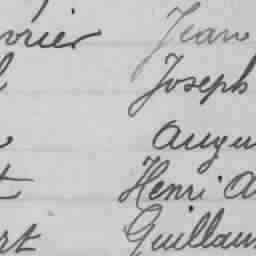 vrier Jean
Joseph
Augu
t Henri A
rt Guillau